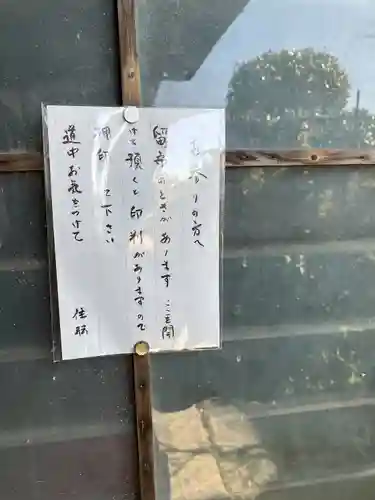 お参りの方へ
留守のときがあります ここを開
けて頂くと印判がありますので
押印して下さい
道中お気をつけて
住職